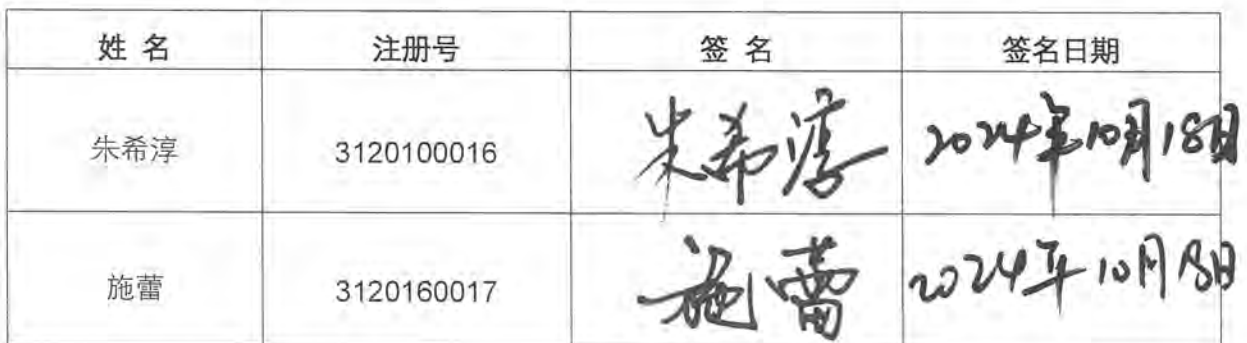 姓 名 注册号 签 名 签名日期
朱希淳 3120100016 朱希淳 2024年10月18日
施蕾 3120160017 施蕾 2024年10月18日